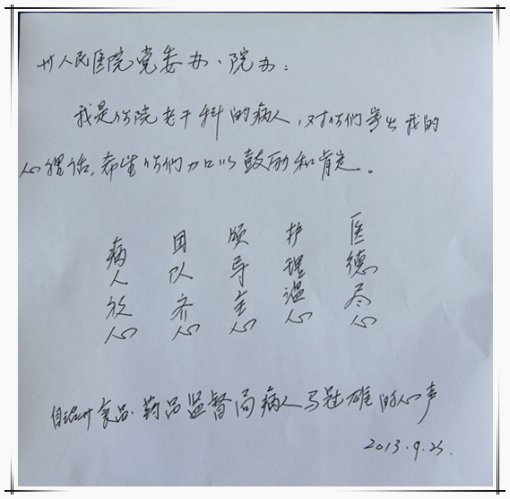 州人民医院党委办、院办：
我是你院老干科的病人，对你们 出我的
心 话，希望你们加以鼓励和肯定。
医德尽心
护理温心
领导 心
团队齐心
病人放心
自治州食品·药品监督局病人马 雄的心声
2013.9.25.